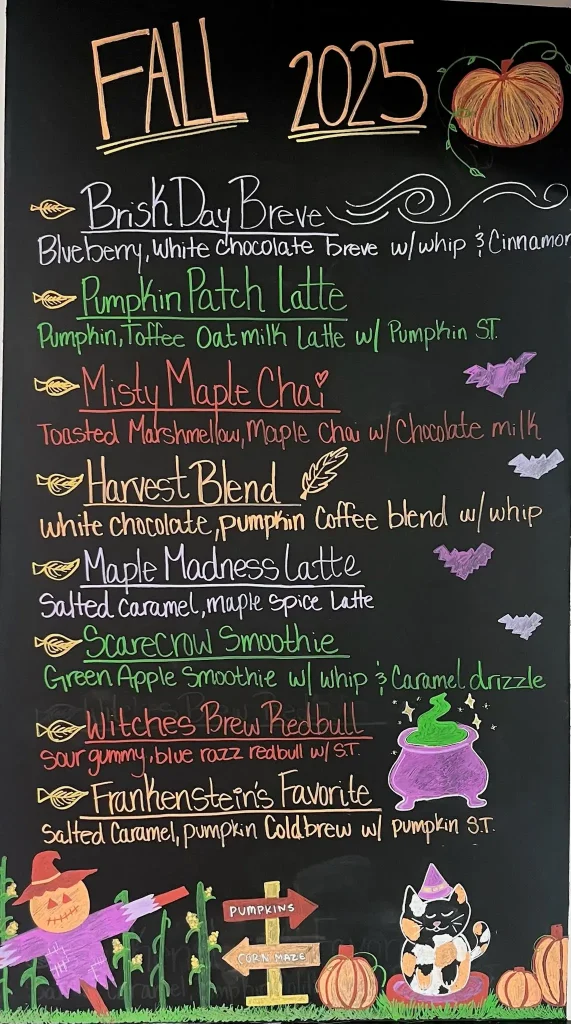 FALL 2025
Brisk Day Breve
Blueberry, white chocolate breve w/whip & Cinnamon
Pumpkin Patch Latte
Pumpkin, Toffee Oatmilk Latte w/ Pumpkin S.T.
Misty Maple Chai
Toasted Marshmellow, Maple Chai w/ Chocolate milk
Harvest Blend
white chocolate, pumpkin Coffee blend w/whip
Maple Madness Latte
Salted Caramel, maple spice Latte
Scarecrow Smoothie
Green Apple Smoothie w/ whip & Caramel drizzle
Witches Brew Redbull
Sour gummy, blue razz redbull w/ S.T.
Frankenstein's Favorite
Salted Caramel, pumpkin Coldbrew w/ pumpkin S.T.
PUMPKINS
CORN MAZE